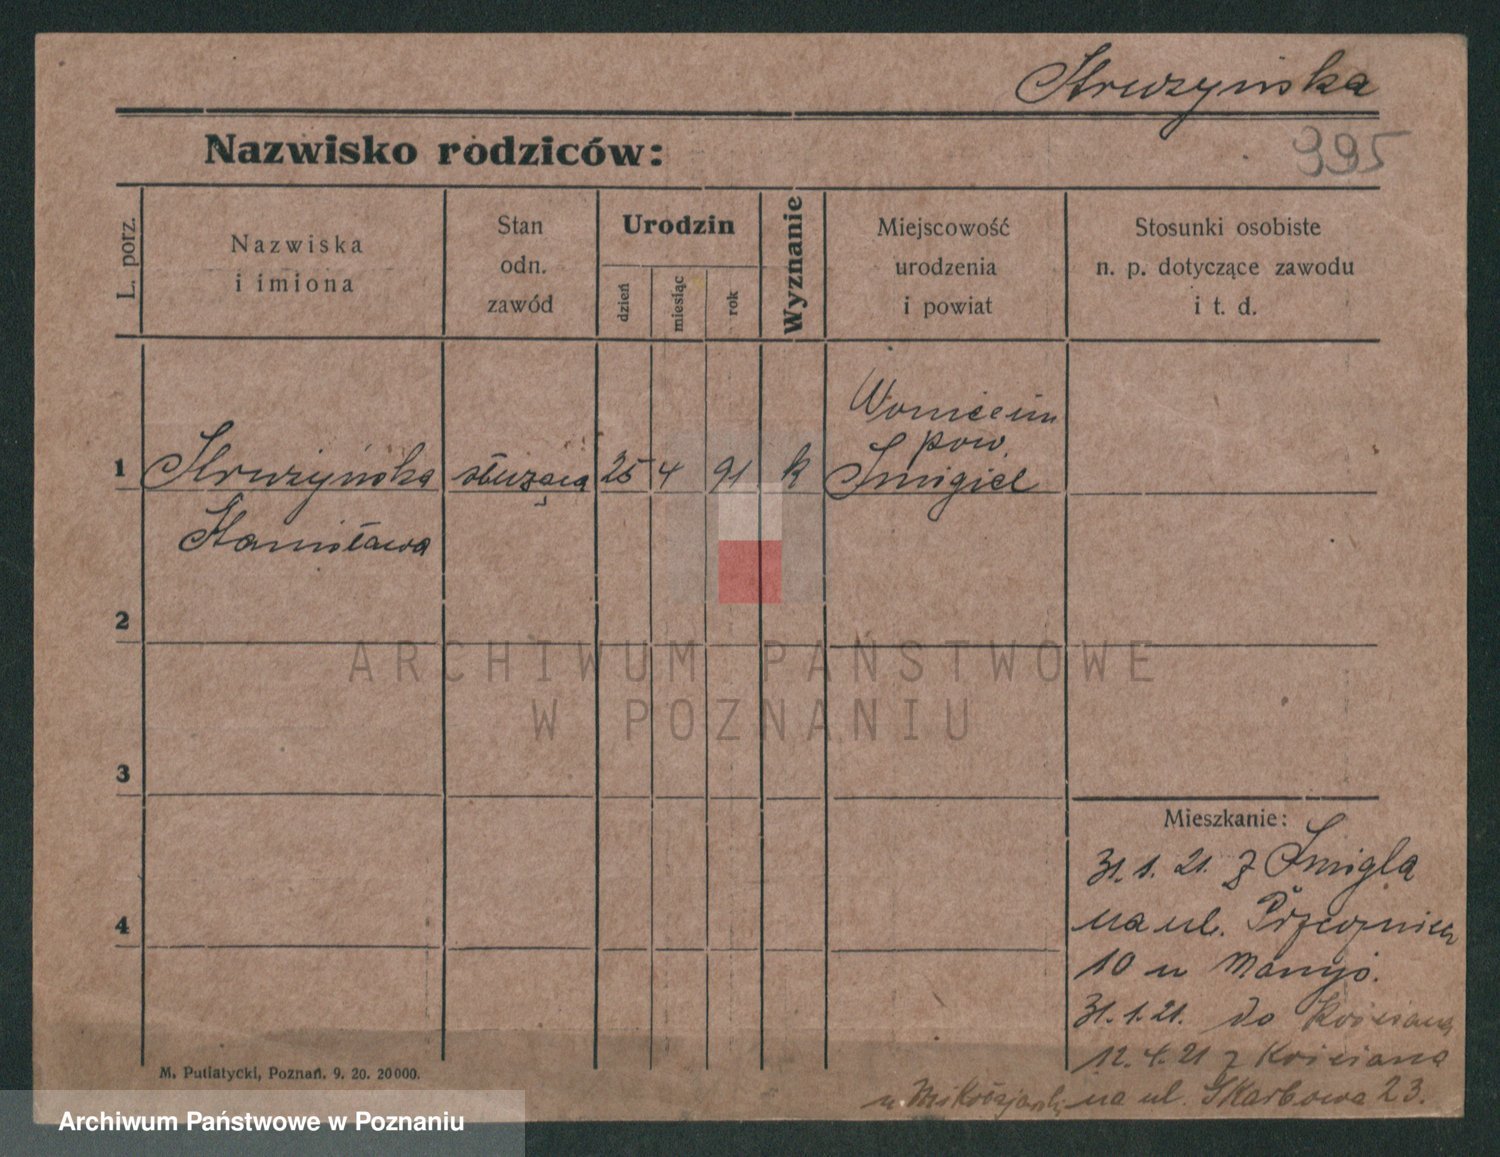 Struzyńska
395
Nazwisko rodziców:
L. porz.
Nazwiska
i imiona
Stan
odn.
zawód
Urodzin
dzień
miesiąc
rok
Wyznanie
Miejscowość
urodzenia
i powiat
Stosunki osobiste
n. p. dotyczące zawodu
i t. d.
Woniecin
pow.
1 Strużyńska służąca 25 4 91 k Śmigiel
Stanisława
2
3
4
ARCHIWUM PAŃSTWOWE
W POZNANIU
Mieszkanie:
31. 1. 21. z Śmigla
na ul.
10 u
31. 1. 21. do Kościana
12. 4. 21 z Kościana
na ul. Skarbowa 23.
M. Putiatycki, Poznań. 9. 20. 20000.
Archiwum Państwowe w Poznaniu